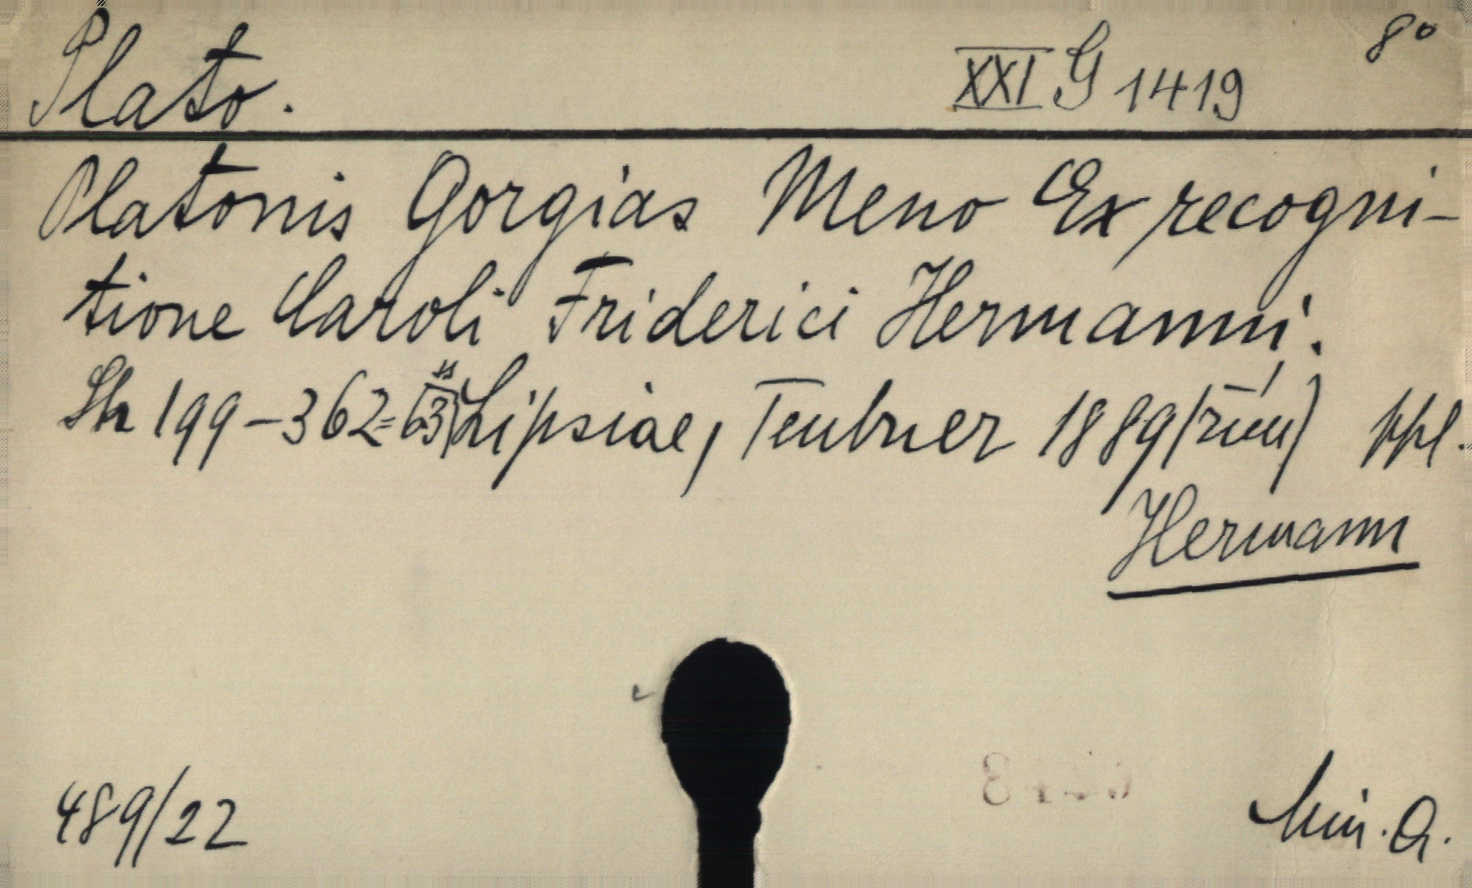 Plato. XXI G 1419 8°
Platonis Gorgias Meno Ex recogni-
tione Caroli Friderici Hermanni.
Str 199-362=163 Lipsiae, Teubner 1889 (říj) ppl.
Hermann
489/22 Min. A.